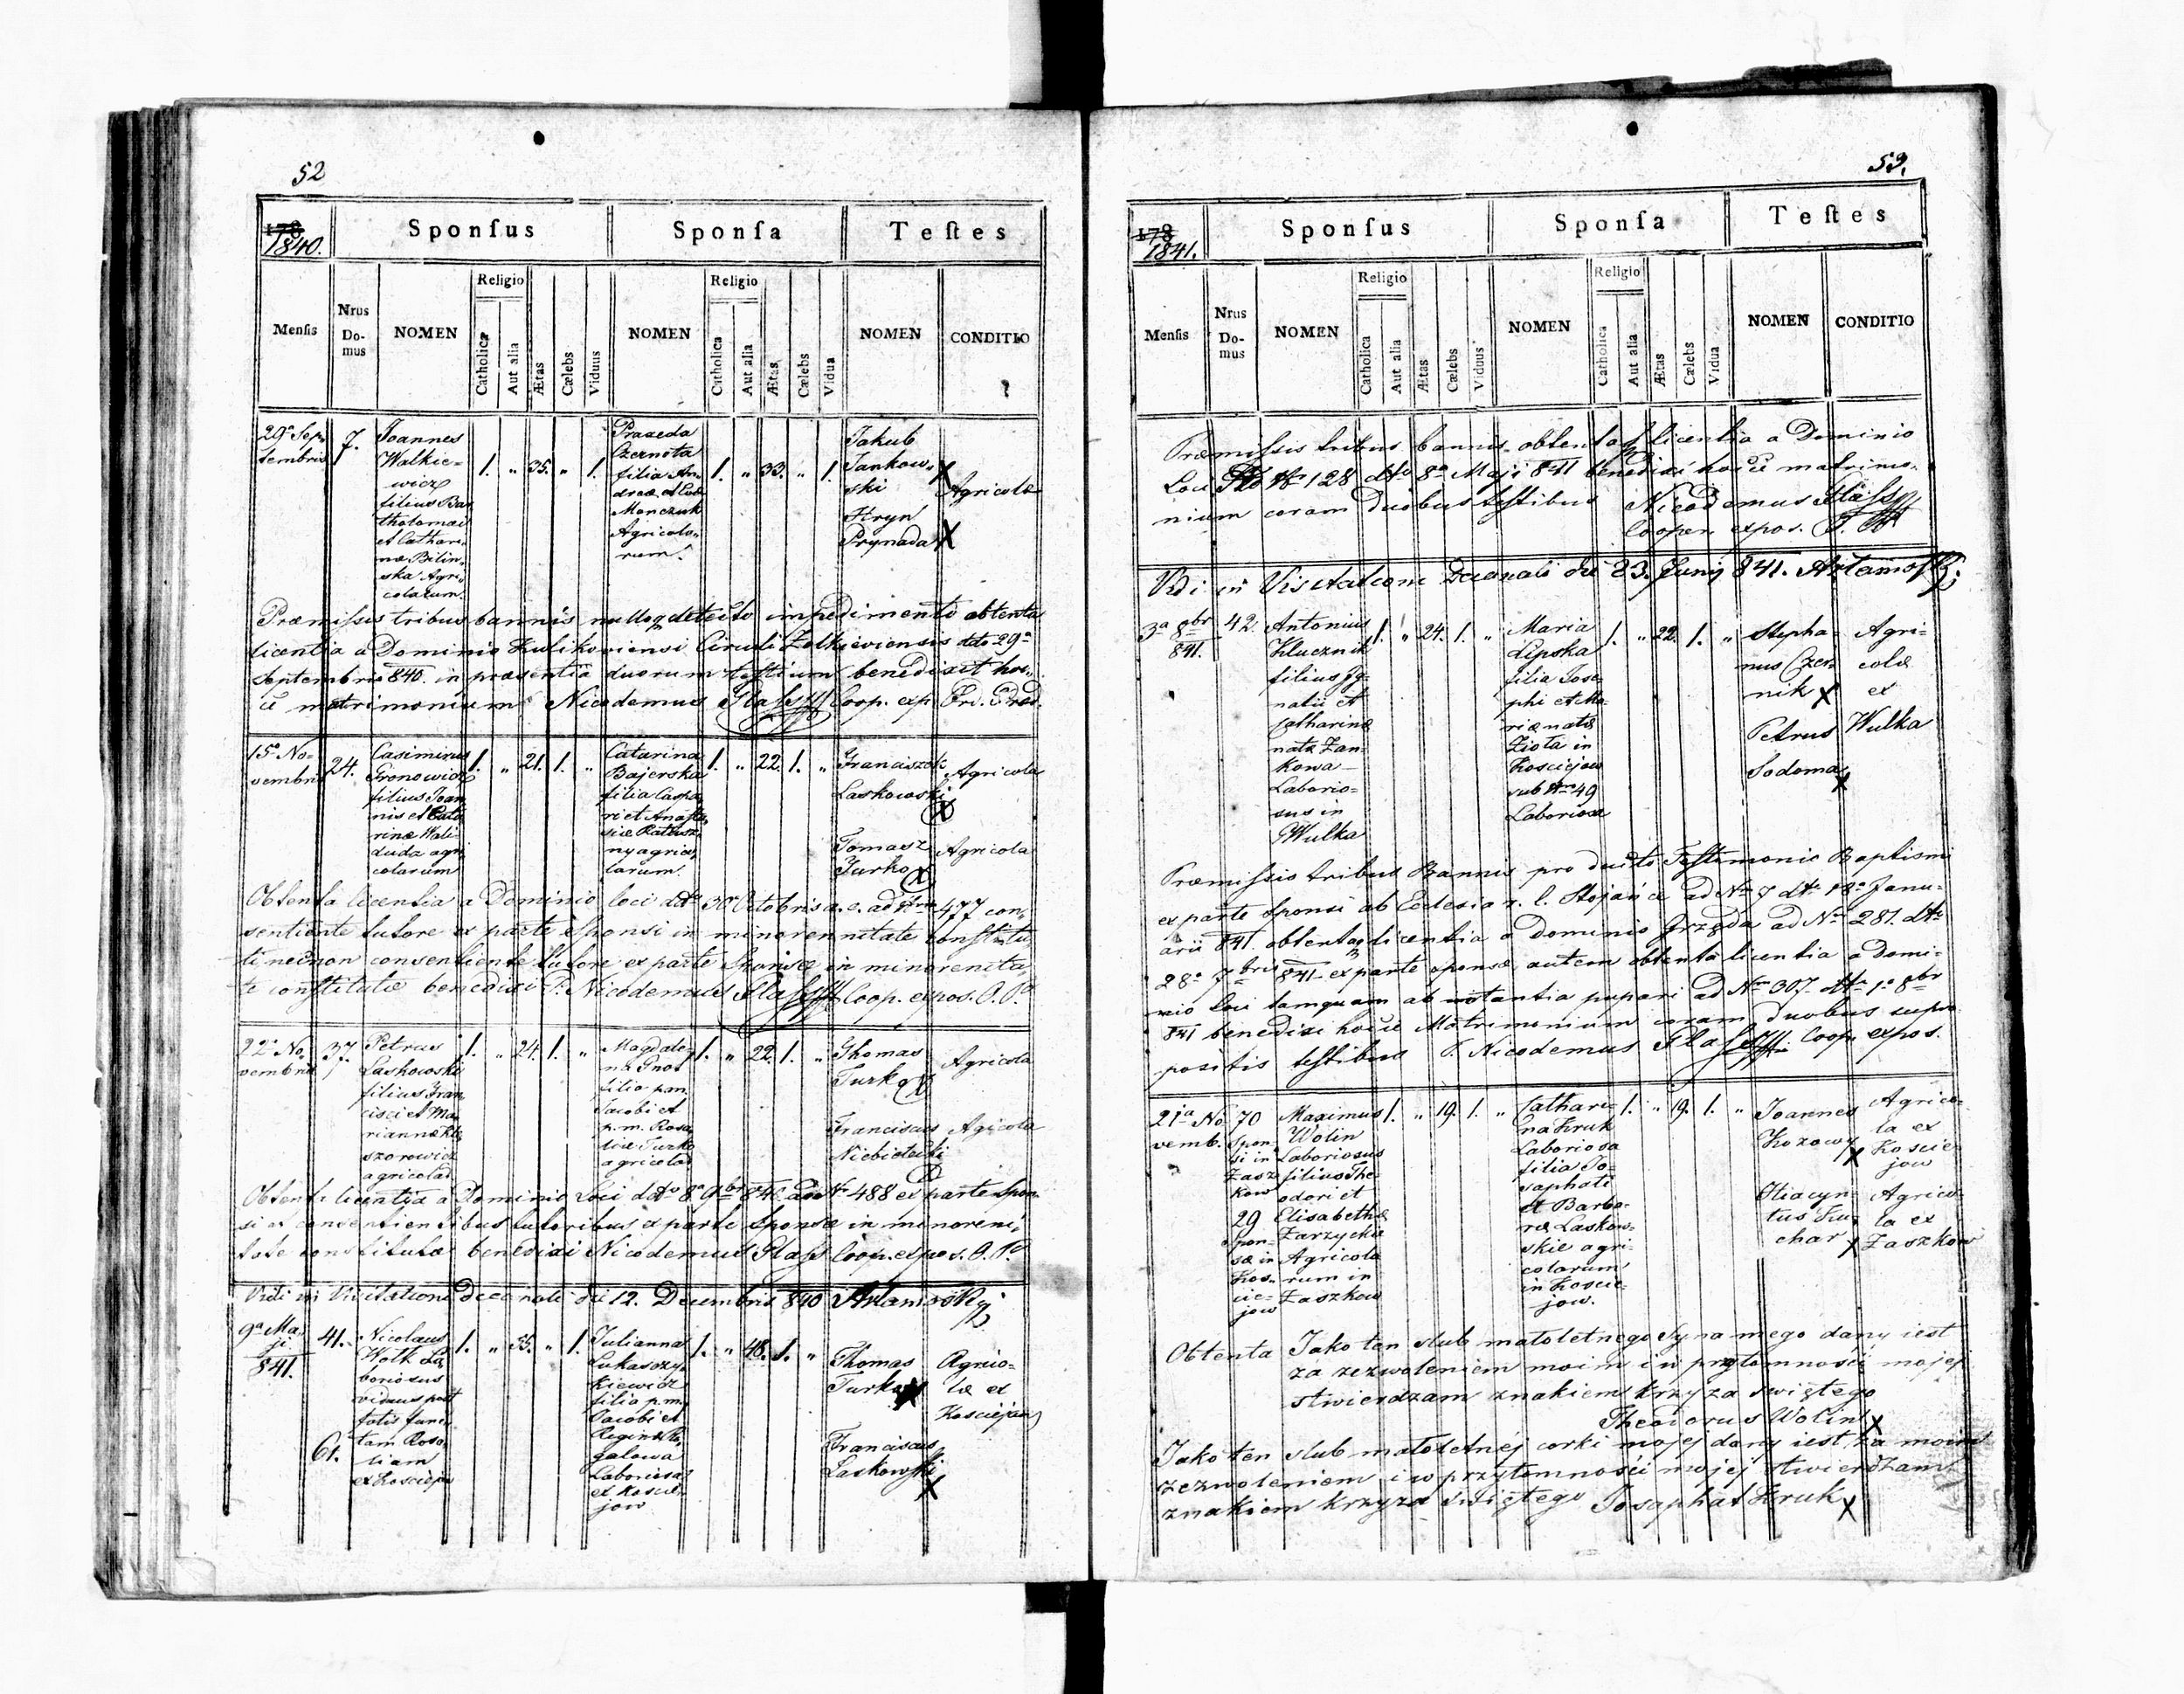 52
178
1840.
Sponſus
Sponſa
Teſtes
Menſis
Nrus
Do-
mus
NOMEN
Religio
Catholica
Aut alia
Ætas
Cælebs
Viduus
NOMEN
Religio
Catholica
Aut alia
Ætas
Cælebs
Vidua
NOMEN
CONDITIO
29a Sep-
tembris
7.
Joannes
Walkie-
wicz
filius Bar
tholomæi
et Cathari-
næ Bilin-
ska Agri-
colarum.
1. „ 35. „ 1.
Praxeda
Czernota
filia An
dreæ et
Monczuk
Agricola-
rum.
1. „ 33. „ 1.
Jakub
Jankow-
ski X
Hryn
Prynada X
Agricolæ
Præmissis tribus bannis nulloq detecto impedimento obtenta
licentia a Dominio Kulikoviensi Circuli Zolkieviensis ddo 29a
Septembris 840. in præsentia duorum testium benedixit hoc-
ce matrimonium Nicodemus Coop. exp. Ord. Præd.
15a No-
vembris
24.
Casimirus
Gronowicz
filius Joan
nis et Cata
rinæ Wali-
duda agri
colarum
1. „ 21. 1. „
Catarina
Bajerska
filia Caspa
ri et Anasta
siæ Ratusz
ny agrico
larum.
1. „ 22. 1. „
Franciszek
Laskowski
X
Tomasz
Turko X
Agricola
Agricola
Obtenta licentia a Dominio loci ddto 30a Octobris a. c. ad Nrum 477 con-
sentiente tutore ex parte Sponsi in minorennitate constitu
ti necnon consentiente tutore ex parte Sponsæ in minorenita
te constitutæ benedixi P. Nicodemus Coop. expos. O. P.
22a No-
vembris
37.
Petrus
Laskowski
filius Fran
cisci et Ma
riannæ
szorowicz
agricolæ
1. „ 24. 1. „
Magdale-
na Gnot
filia p.m.
Jacobi et
p. m. Rosa
liæ Turko
agricolæ
1. „ 22. 1. „
Thomas
Turko X
Franciscus
Niebiotecki
Agricola
Agricola
Obtenta licentia a Dominio Loci ddto 8a 9bris 840 ad Nr 488 ex parte Spon-
si et consentientibus tutoribus ex parte Sponsæ in minoreni-
tate constitutæ benedixi Nicodemus Coop. expos. O. P.
Vidi in Visitatione decanali die 12. Decembris 840
9a Ma-
ji
841.
41.
61.
Nicolaus
Wolk La
boriosus
viduus post
fatis func
tam Rosa-
liam
ex Kosciejow
1. „ 55. „ 1.
Julianna
Lukaszy-
kiewicz
filia p. m.
Jacobi et
Reginæ
galowa
Laboriosa
ex Koscie-
jow
1. „ 48. 1. „
Thomas
Turko X
Franciscus
Laskowski
X
Agrico-
læ ex
Kosciejow
53.
178
1841.
Sponſus
Sponſa
Teſtes
Menſis
Nrus
Do-
mus
NOMEN
Religio
Catholica
Aut alia
Ætas
Cælebs
Viduus
NOMEN
Religio
Catholica
Aut alia
Ætas
Cælebs
Vidua
NOMEN
CONDITIO
Præmissis tribus bannis obtentaq licentia a Dominio
Loci Nr 128 dto 8a Maji 841 benedixi hocce matrimo-
nium coram duobus testibus Nicodemus
Cooper. expos.
Vidi in Visitatione Decanali die 23. Junij 841.
3a 8br
841.
42.
Antonius
Klucznik
filius Ig-
natii et
Catharinæ
natæ Zan-
kowa
Laborio-
sus in
Wulka
1. „ 24. 1. „
Maria
Lipska
filia Jose-
phi et Ma-
riæ natæ
Ziola in
Kosciejow
sub Nro 49
Laboriosa
1. „ 22. 1. „
Stepha-
nus Czer-
nik X
Petrus
Sodoma
X
Agri-
colæ
ex
Wulka
Præmissis tribus Bannis producto Testimonio Baptismi
ex parte Sponsi ab Ecclesia r. l. Stojańce ad Nr 7 dto 18a Janu-
arii 841. obtentaq licentia a Dominio Grzęda ad Nr 281. dto
28a 7bris 841 ex parte sponsæ autem obtenta licentia a Domi-
nio loci tamquam ab instantia pupari ad Nr 307 dto 1a 8br
841 benedixi hocce Matrimonium coram duobus supra
positis testibus P. Nicodemus Coop. expos.
21a No-
vemb.
70
Spon-
si in
Zasz
kow
29
Spon-
sæ in
Kos-
cie-
jow
Maximus
Wolin
Laboriosus
filius The-
odori et
Elisabethæ
Zarzyckie
Agricola
rum in
Zaszkow
1. „ 19. 1. „
Cathari-
na Kruk
Laboriosa
filia Jo-
saphati
et Barba-
ræ Laskow-
skie agri-
colarum
in Koscie-
jow.
1. „ 19. 1. „
Joannes
Kozowy
X
Hiacyn-
tus Ku-
char X
Agrico-
la ex
Koscie-
jow
Agrico-
la ex
Zaszkow
Obtenta Jako ten slub maloletnego Syna mego dany iest
za zezwoleniem moim i w przytomności mojej
stwierdzam znakiem krzyża swiętego
Theodorus Wolin X
Jako ten slub maloletnej corki mojej dany iest za moim
zezwoleniem i w przytomności mojej stwierdzam
znakiem krzyża świętego Josaphat Kruk X